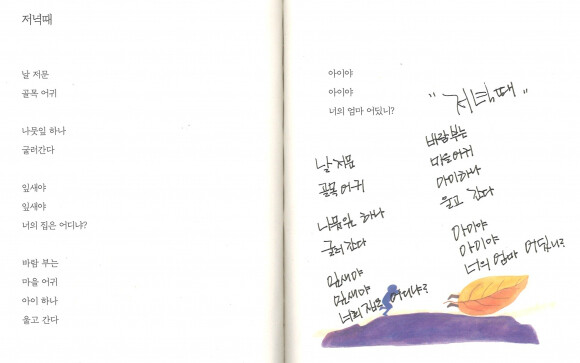 저녁때
날 저문
골목 어귀
나뭇잎 하나
굴러간다
잎새야
잎새야
너의 집은 어디냐?
바람 부는
마을 어귀
아이 하나
울고 간다
아이야
아이야
너의 엄마 어딨니?
"저녁때"
날 저문
골목 어귀
나뭇잎 하나
굴러간다
잎새야
잎새야
너의 집은 어디냐?
바람 부는
마을 어귀
아이 하나
울고 간다
아이야
아이야
너의 엄마 어딨니?